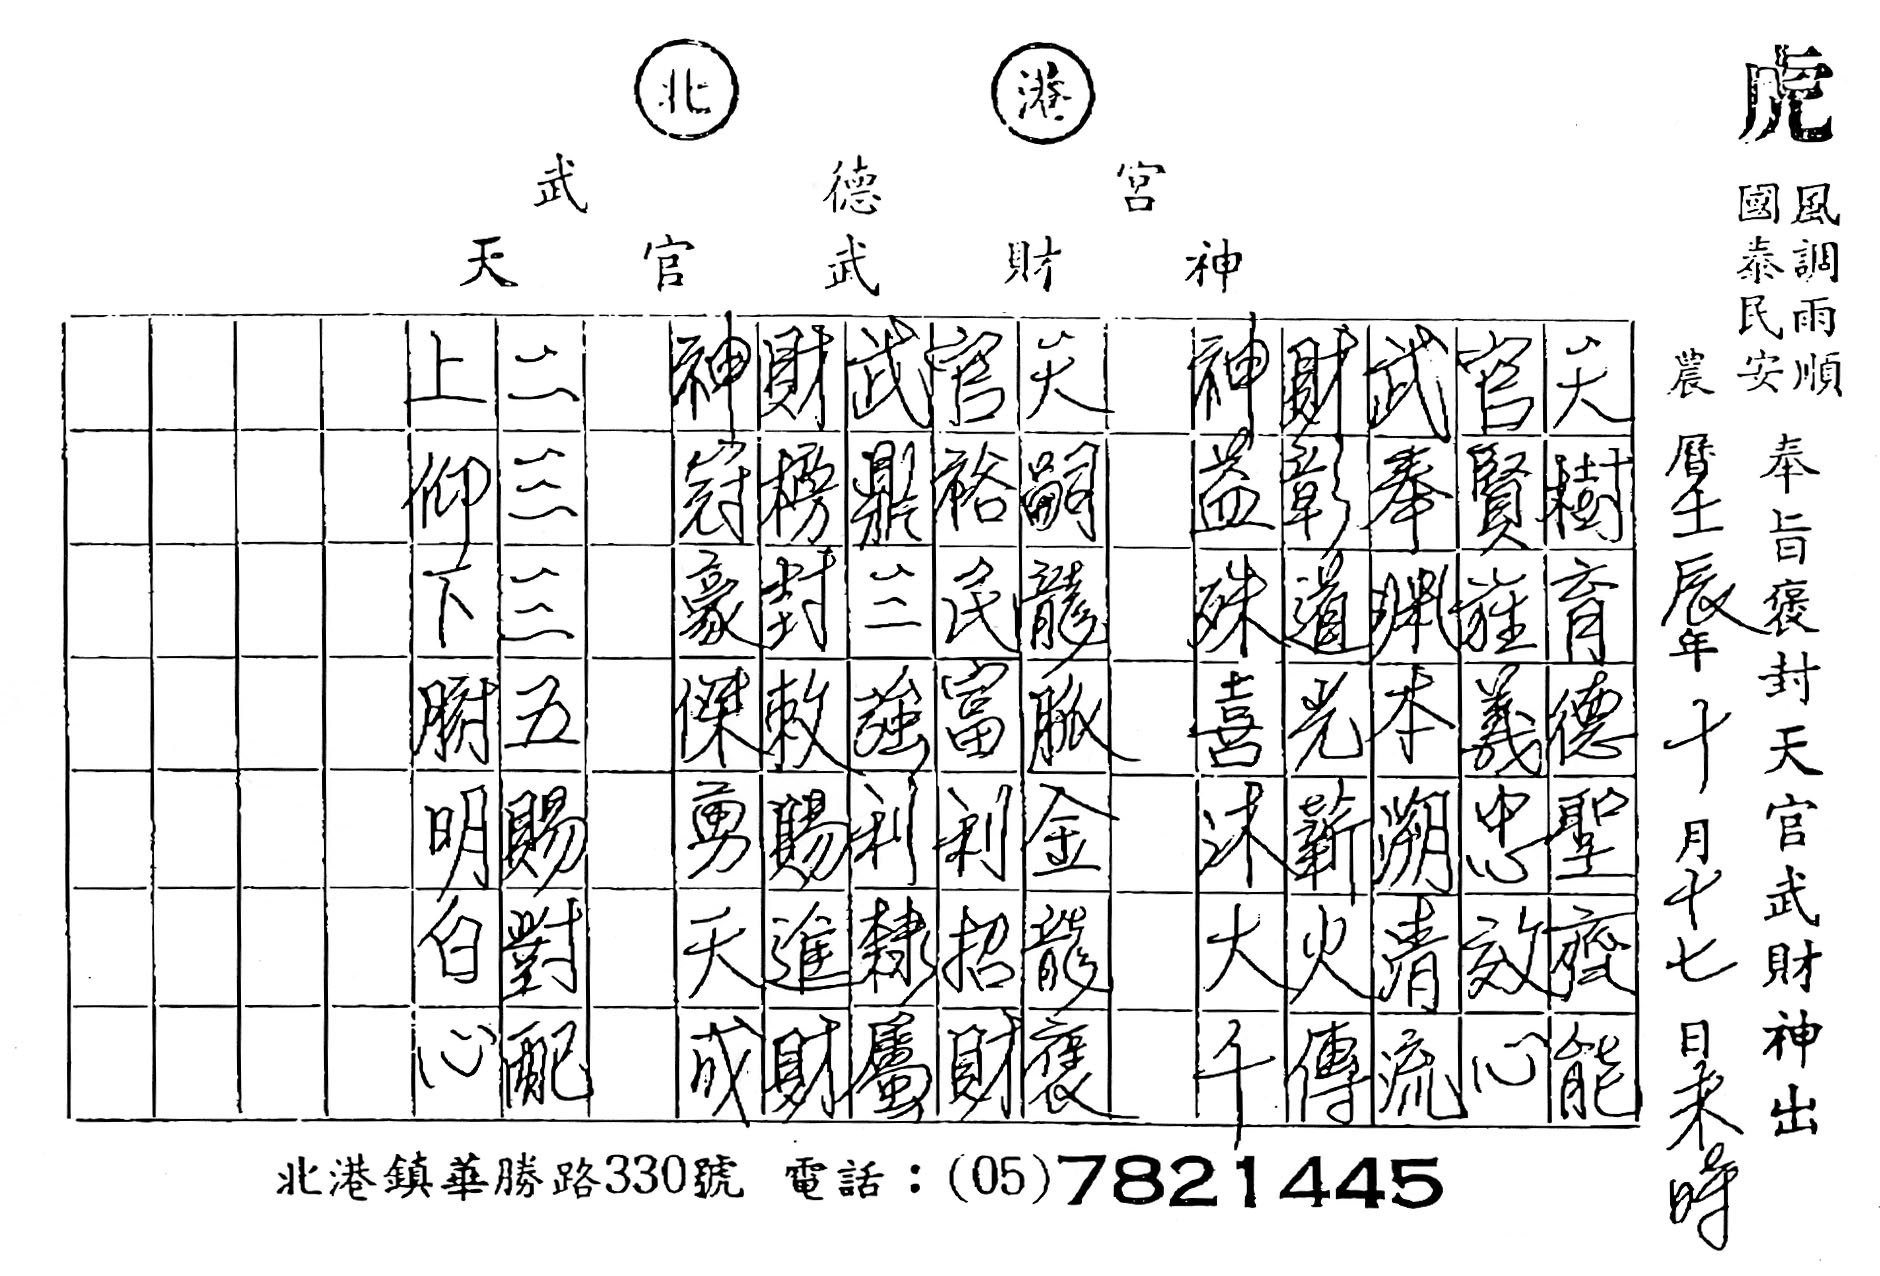 北 港
武 德 宮
天 官 武 財 神
虎
風調雨順
國泰民安
奉旨褒封天官武財神出
農曆壬辰年十月十七日未時
天樹育德聖齊能
官賢旌義忠效心
武奉淵本溯清流
財彰道光薪火傳
神益殊喜沐大千
天嗣龍脈金龍褒
官裕民富利招財
武鼎三強利隸屬
財榜封敕賜進財
神冠豪傑勇天成
二三三五賜對配
上仰下明白心
北港鎮華勝路330號 電話：(05)7821445